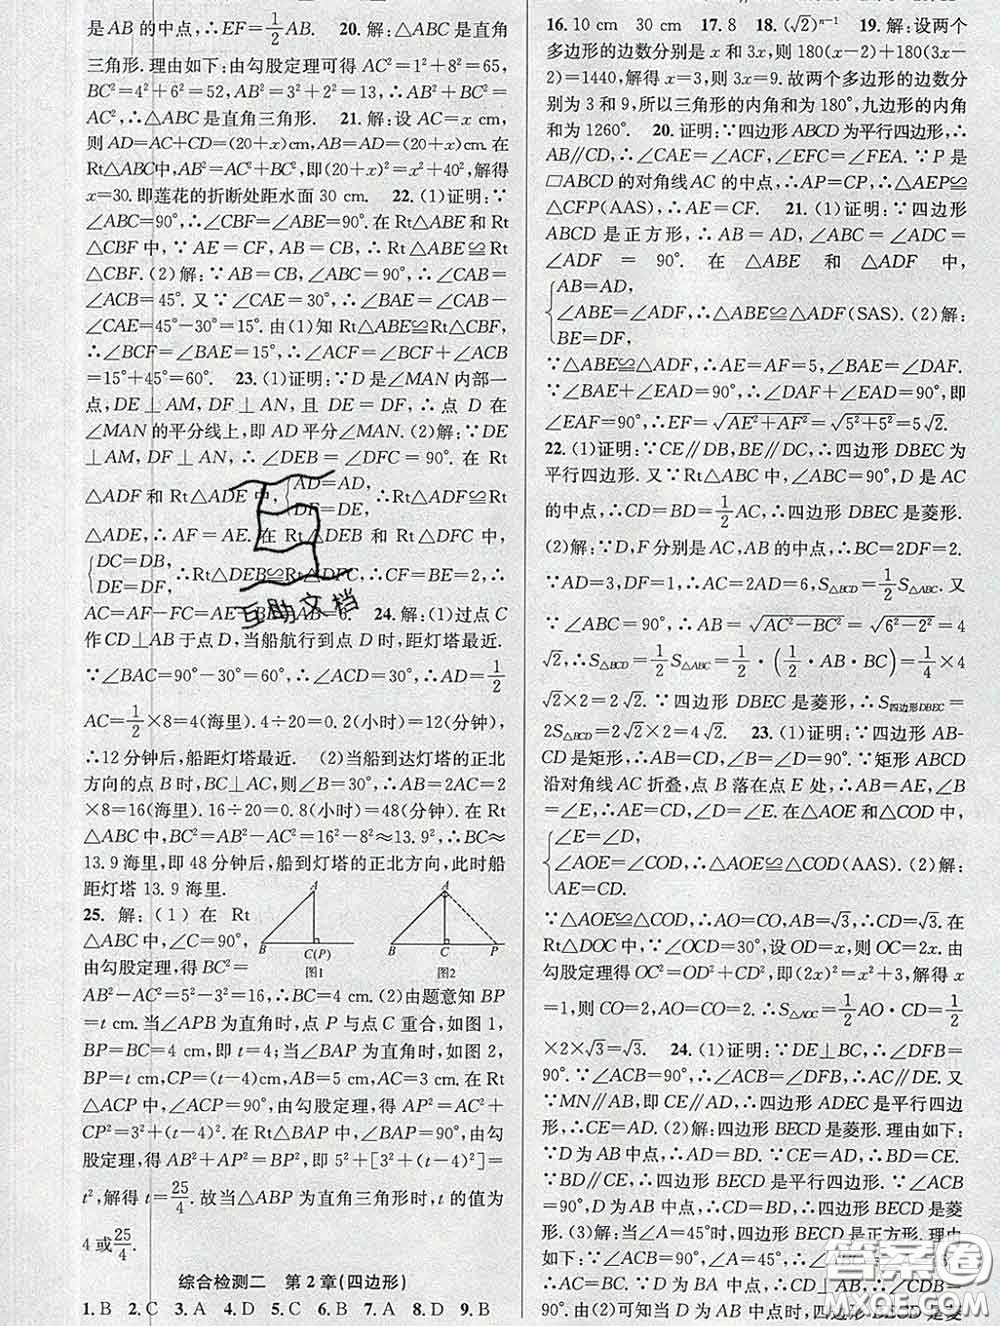 是AB的中点,∴EF=1/2AB. 20. 解:△ABC是直角
三角形.理由如下:由勾股定理可得AC²=1²+8²=65,
BC²=4²+6²=52,AB²=2²+3²=13,∴AB²+BC²=
AC²,∴△ABC是直角三角形. 21. 解:设AC=x cm,
则AD=AC+CD=(20+x)cm,AB=AD=(20+x)cm.在
Rt△ABC中,AB²=AC²+BC²,即(20+x)²=x²+40²,解得
x=30.即莲花的折断处距水面30 cm. 22. (1)证明:∵
∠ABC=90°,∴∠CBF=∠ABE=90°.在Rt△ABE和Rt
△CBF中,∵AE=CF,AB=CB,∴Rt△ABE≌Rt△
CBF.(2)解:∵AB=CB,∠ABC=90°,∴∠CAB=
∠ACB=45°.又∵∠CAE=30°,∴∠BAE=∠CAB-
∠CAE=45°-30°=15°.由(1)知Rt△ABE≌Rt△CBF,
∴∠BCF=∠BAE=15°,∴∠ACF=∠BCF+∠ACB
=15°+45°=60°. 23. (1)证明:∵D是∠MAN内部一
点,DE⊥AM,DF⊥AN,且DE=DF,∴点D在
∠MAN的平分线上,即AD平分∠MAN.(2)解:∵DE
⊥AM,DF⊥AN,∴∠DEB=∠DFC=90°.在Rt
△ADF和Rt△ADE中,{AD=AD, DF=DE, ∴Rt△ADF≌Rt
△ADE,∴AF=AE.在Rt△DEB和Rt△DFC中,
{DC=DB, DE=DF, ∴Rt△DEB≌Rt△DFC,∴CF=BE=2,∴
AC=AF-FC=AE-BE=AB=6. 24. 解:(1)过点C
互助文档
作CD⊥AB于点D,当船航行到点D时,距灯塔最近.
∵∠BAC=90°-30°=60°,∴∠ACD=30°,∴AD=1/2
AC=1/2×8=4(海里).4÷20=0.2(小时)=12(分钟),
∴12分钟后,船距灯塔最近. (2)当船到达灯塔的正北
方向的点B时,BC⊥AC,则∠B=30°,∴AB=2AC=2
×8=16(海里).16÷20=0.8(小时)=48(分钟).在Rt
△ABC中,BC²=AB²-AC²=16²-8²≈13.9²,∴BC≈
13.9海里,即48分钟后,船到灯塔的正北方向,此时船
距灯塔13.9海里.
25. 解:(1)在Rt
△ABC中,∠C=90°,
由勾股定理,得BC²=
A
B
C(P)
图1
A
B
C
P
图2
AB²-AC²=5²-3²=16,∴BC=4 cm.(2)由题意知BP
=t cm.当∠APB为直角时,点P与点C重合,如图1,
BP=BC=4 cm,即t=4;当∠BAP为直角时,如图2,
BP=t cm,CP=(t-4)cm,AB=5 cm,AC=3 cm.在Rt
△ACP中,∠ACP=90°,由勾股定理,得AP²=AC²+
CP²=3²+(t-4)².在Rt△BAP中,∠BAP=90°,由勾
股定理,得AB²+AP²=BP²,即5²+[3²+(t-4)²]=
t²,解得t=25/4.故当△ABP为直角三角形时,t的值为
4或25/4.
综合检测二 第2章(四边形)
1. B 2. C 3. A 4. D 5. C 6. B 7. A 8. D 9. B
16. 10 cm 30 cm 17. 8 18. (√2)ⁿ⁻¹ 19. 解:设两个
多边形的边数分别是x和3x,则180(x-2)+180(3x-
2)=1440,解得x=3,则3x=9.故两个多边形的边数分
别为3和9,所以三角形的内角和为180°,九边形的内角
和为1260°. 20. 证明:∵四边形ABCD为平行四边形,∴
AB∥CD,∴∠CAE=∠ACF,∠EFC=∠FEA.∵P是
□ABCD的对角线AC的中点,∴AP=CP,∴△AEP≌
△CFP(AAS),∴AE=CF. 21. (1)证明:∵四边形
ABCD是正方形,∴AB=AD,∠ABC=∠ADC=
∠ADF=90°.在△ABE和△ADF中,
{AB=AD,
∠ABE=∠ADF,∴△ABE≌△ADF(SAS).(2)解:
BE=DF,
∵△ABE≌△ADF,∴AE=AF=5,∠BAE=∠DAF.
∵∠BAE+∠EAD=90°,∴∠DAF+∠EAD=90°,即
∠EAF=90°,∴EF=√AE²+AF²=√5²+5²=5√2.
22. (1)证明:∵CE∥DB,BE∥DC,∴四边形DBEC为
平行四边形.又∵Rt△ABC中,∠ABC=90°,D是AC
的中点,∴CD=BD=1/2AC,∴四边形DBEC是菱形.
(2)解:∵D,F分别是AC,AB的中点,∴BC=2DF=2.
∵AD=3,DF=1,∴AC=2AD=6,S△BCD=1/2S△ABC.又
∵∠ABC=90°,∴AB=√AC²-BC²=√6²-2²=4
√2,∴S△BCD=1/2S△ABC=1/2·(1/2·AB·BC)=1/4×4
√2×2=2√2.∵四边形DBEC是菱形,∴S四边形DBEC=
2S△BCD=2√2×2=4√2. 23. (1)证明:∵四边形AB-
CD是矩形,∴AB=CD,∠B=∠D=90°.∵矩形ABCD
沿对角线AC折叠,点B落在点E处,∴AB=AE,∠B
=∠E,∴AE=CD,∠E=∠D.在△AOE和△COD中,
{∠E=∠D,
∠AOE=∠COD,∴△AOE≌△COD(AAS).(2)解:
AE=CD.
∵△AOE≌△COD,∴AO=CO,AB=√3,∴CD=√3.在
Rt△DOC中,∵∠OCD=30°,设OD=x,则OC=2x.由
勾股定理得OC²=OD²+CD²,即(2x)²=x²+3,解得x
=1,则CO=2,AO=CO=2.∴S△AOC=1/2AO·CD=1/2
×2×√3=√3. 24. (1)证明:∵DE⊥BC,∴∠DFB=
90°.∵∠ACB=90°,∴∠ACB=∠DFB,∴AC∥DE.又
∵MN∥AB,即CE∥AD,∴四边形ADEC是平行四边
形,∴CE=AD.(2)解:四边形BECD是菱形.理由如下:
∵D为AB中点,∴AD=BD.∵CE=AD,∴BD=CE.
∵BD∥CE,∴四边形BECD是平行四边形.∵∠ACB
=90°,D为AB中点,∴CD=BD,∴四边形BECD是菱
形.(3)解:当∠A=45°时,四边形BECD是正方形.理由
如下:∵∠ACB=90°,∠A=45°,
90°.由(2)可知当D为AB中点时,四边形BECD是菱
答案圈
MXQE.COM